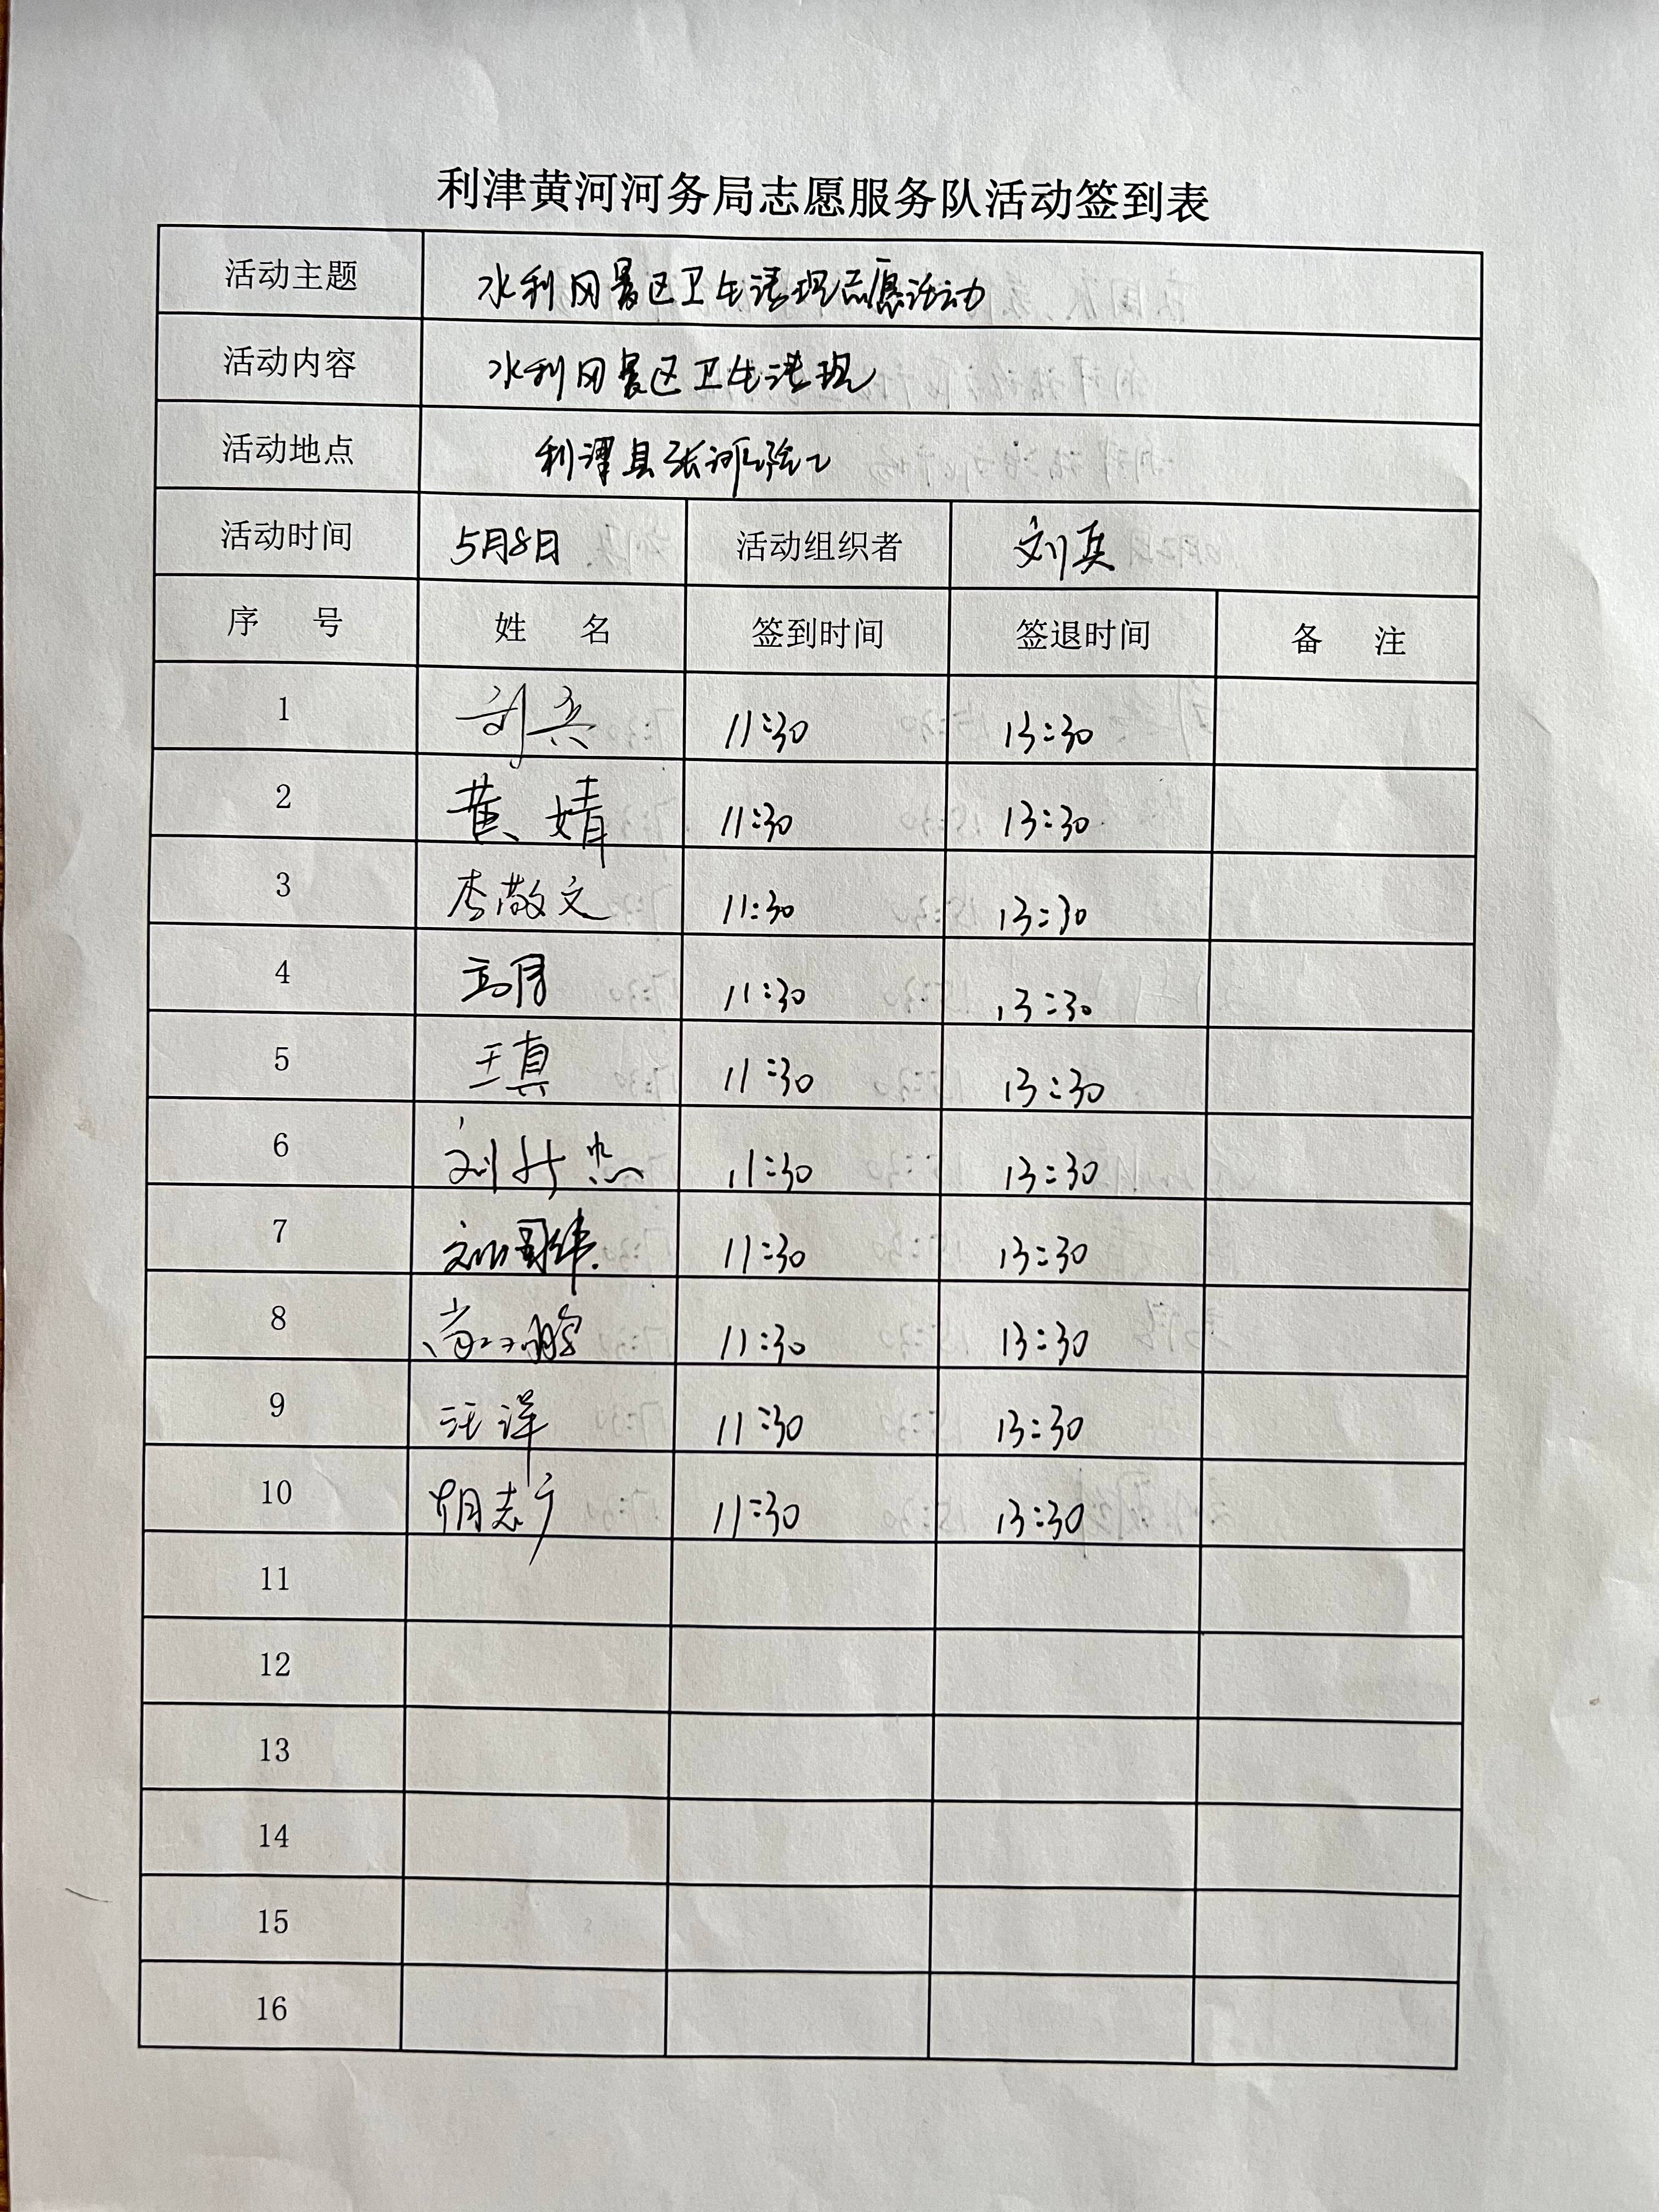 利津黄河河务局志愿服务队活动签到表
活动主题 水利风景区卫生清理志愿活动
活动内容 水利风景区卫生清理
活动地点 利津县张滩险工
活动时间 5月8日 活动组织者 刘兵
序 号 姓 名 签到时间 签退时间 备 注
1 刘兵 11:30 13:30
2 黄婧 11:30 13:30
3 李敬文 11:30 13:30
4 高月 11:30 13:30
5 王真 11:30 13:30
6 刘 11:30 13:30
7 11:30 13:30
8 11:30 13:30
9 汪洋 11:30 13:30
10 胡志 11:30 13:30
11
12
13
14
15
16